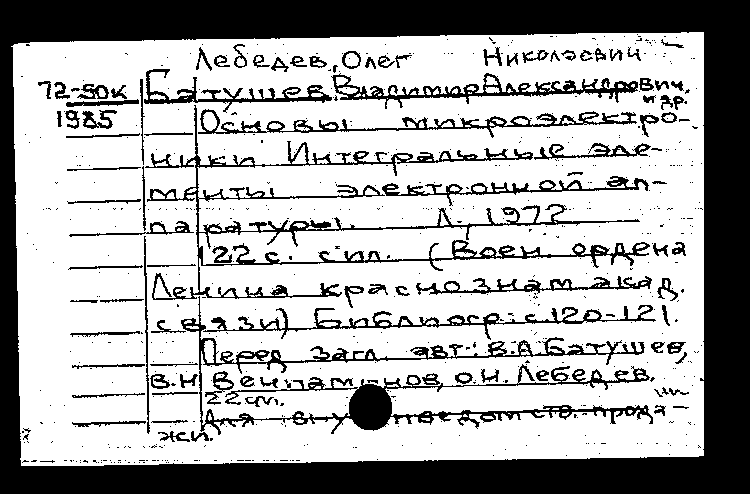 Лебедев, Олег Николаевич
72-50к Батушев, Владимир Александрович.
и др.
1985 Основы микроэлектро-
ники. Интегральные эле-
менты электронной ап-
паратуры. Л., 1972
122 с. с ил. (Воен. ордена
Ленина краснознам акад.
связи) Библиогр: с 120-121.
Перед загл. авт.: В.А. Батушев,
В.Н Вениаминов, О.Н. Лебедев.
22 см.
Для ведомств. прода-
жи.